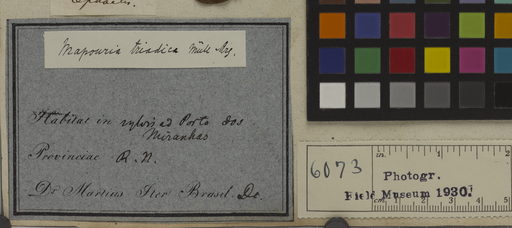 Mapouria triadica Müll Arg.
Habitat in sylvis ad Porto dos
Miranhas
Provinciae R. N.
Dr Martius Iter Brasil. Dc.
6073
Photogr.
Field Museum 1930.
in. 1 2
cm 1 2 3 4 5